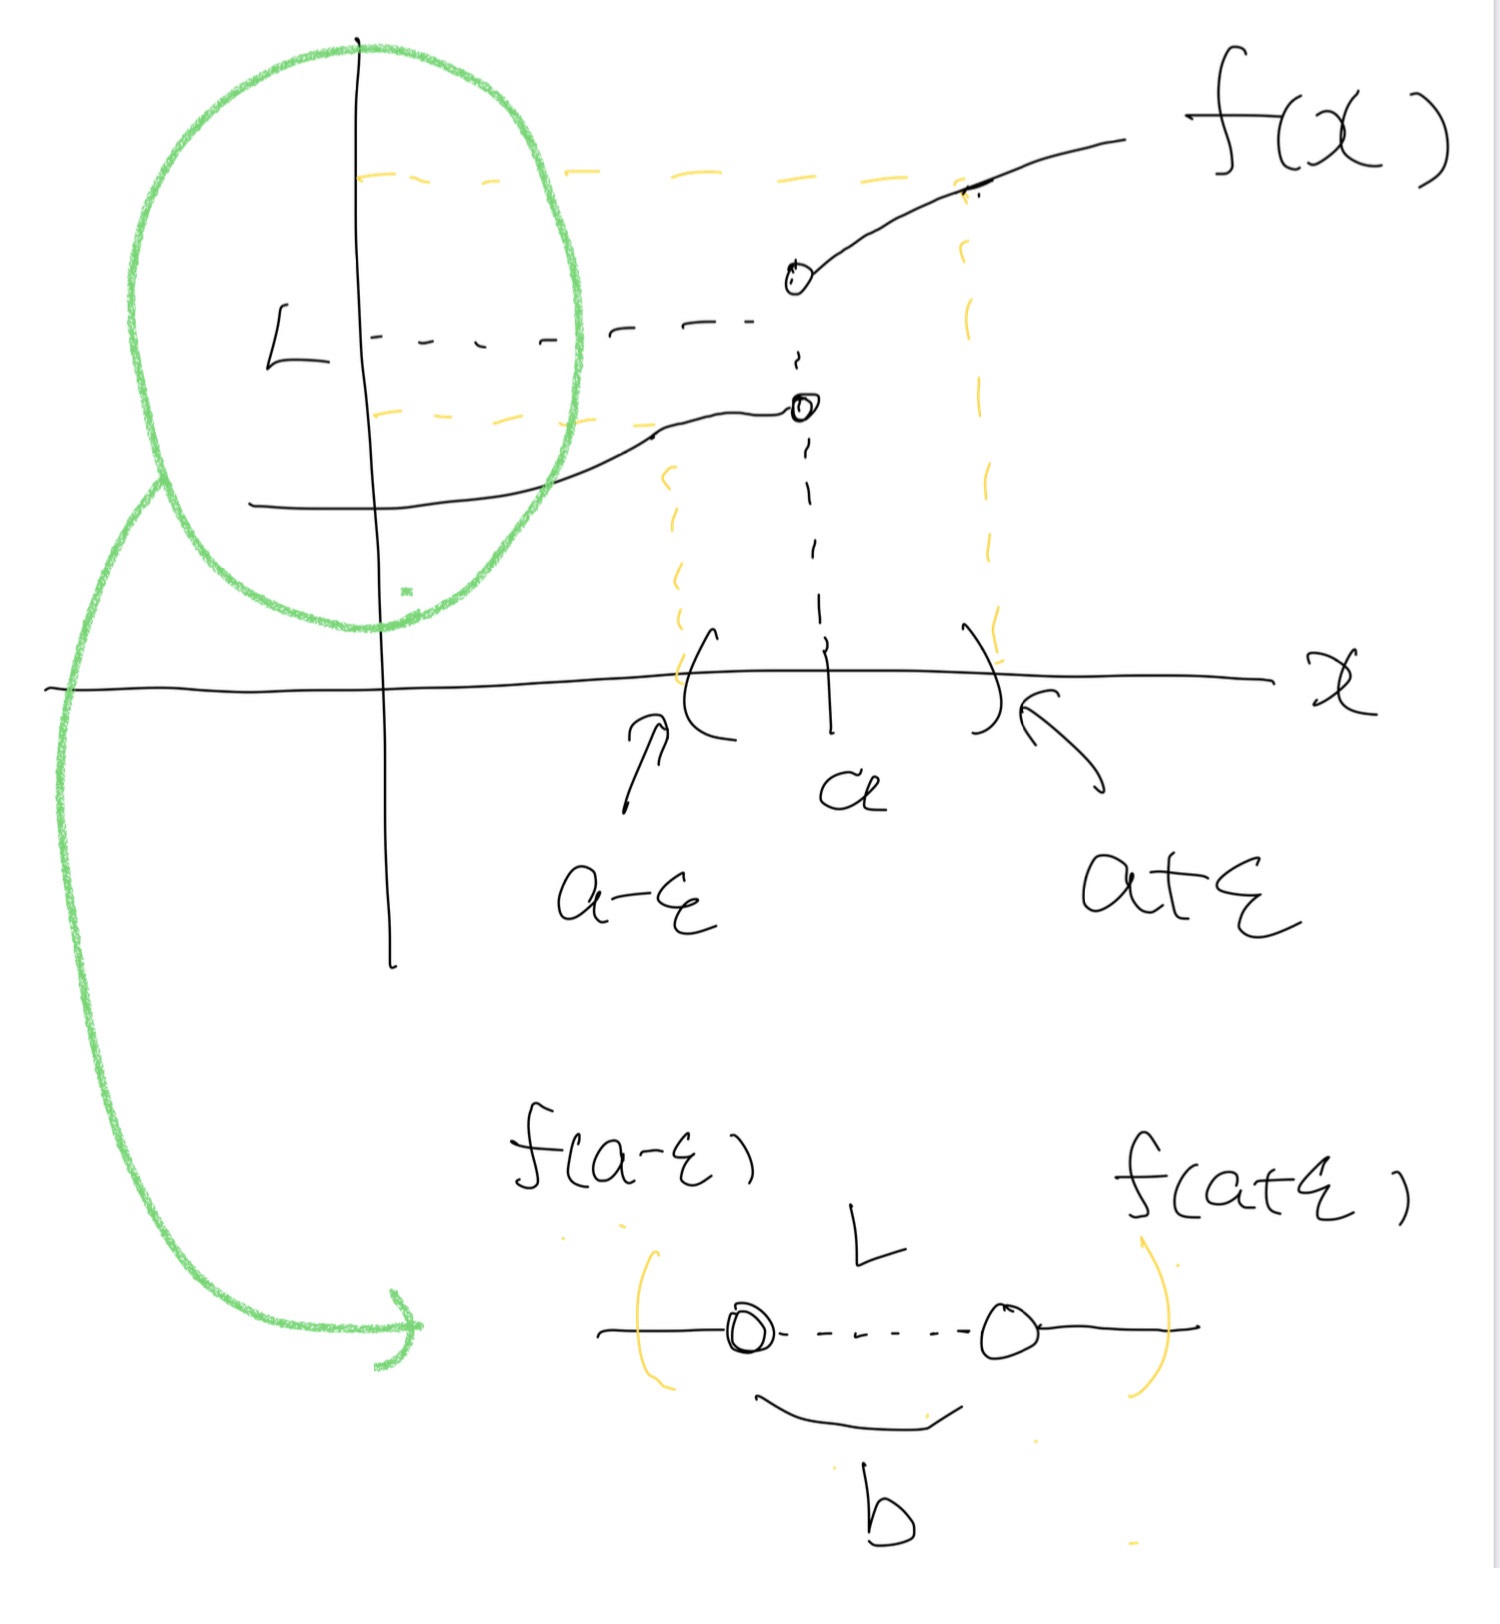 f(x)
L
x
a
a-ε
a+ε
f(a-ε)
f(a+ε)
L
b